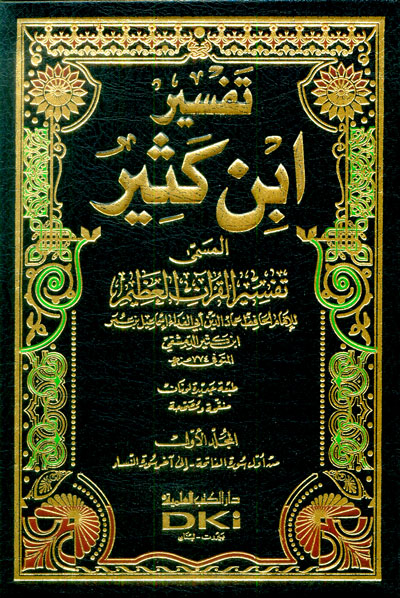 تفسير
ابن كثير
المسمى
تفسير القرآن العظيم
للإمام الحافظ عماد الدين أبي الفداء إسماعيل بن عمر
ابن كثير الدمشقي
المتوفى ٧٧٤ هـ
طبعة جديدة
منقوطة ومصححة
المجلد الأول
من أول سورة الفاتحة - إلى آخر سورة النساء
دار الكتب العلمية
DKi
بيروت - لبنان